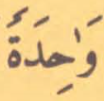 وَٰحِدَةٌ